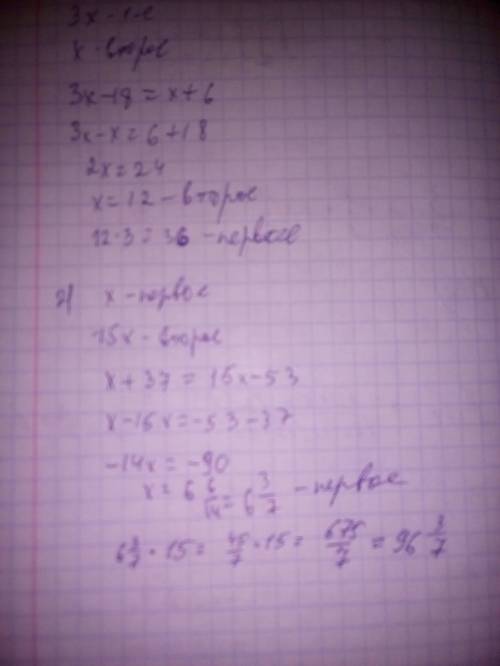 3x - 1-е
x - второе
3x - 18 = x + 6
3x - x = 6 + 18
2x = 24
x = 12 - второе
12 · 3 = 36 - первое
2) x - первое
15x - второе
x + 37 = 15x - 53
x - 15x = -53 - 37
-14x = -90
x = 6 6/14 = 6 3/7 - первое
6 3/7 · 15 = 45/7 · 15 = 675/7 = 96 3/7